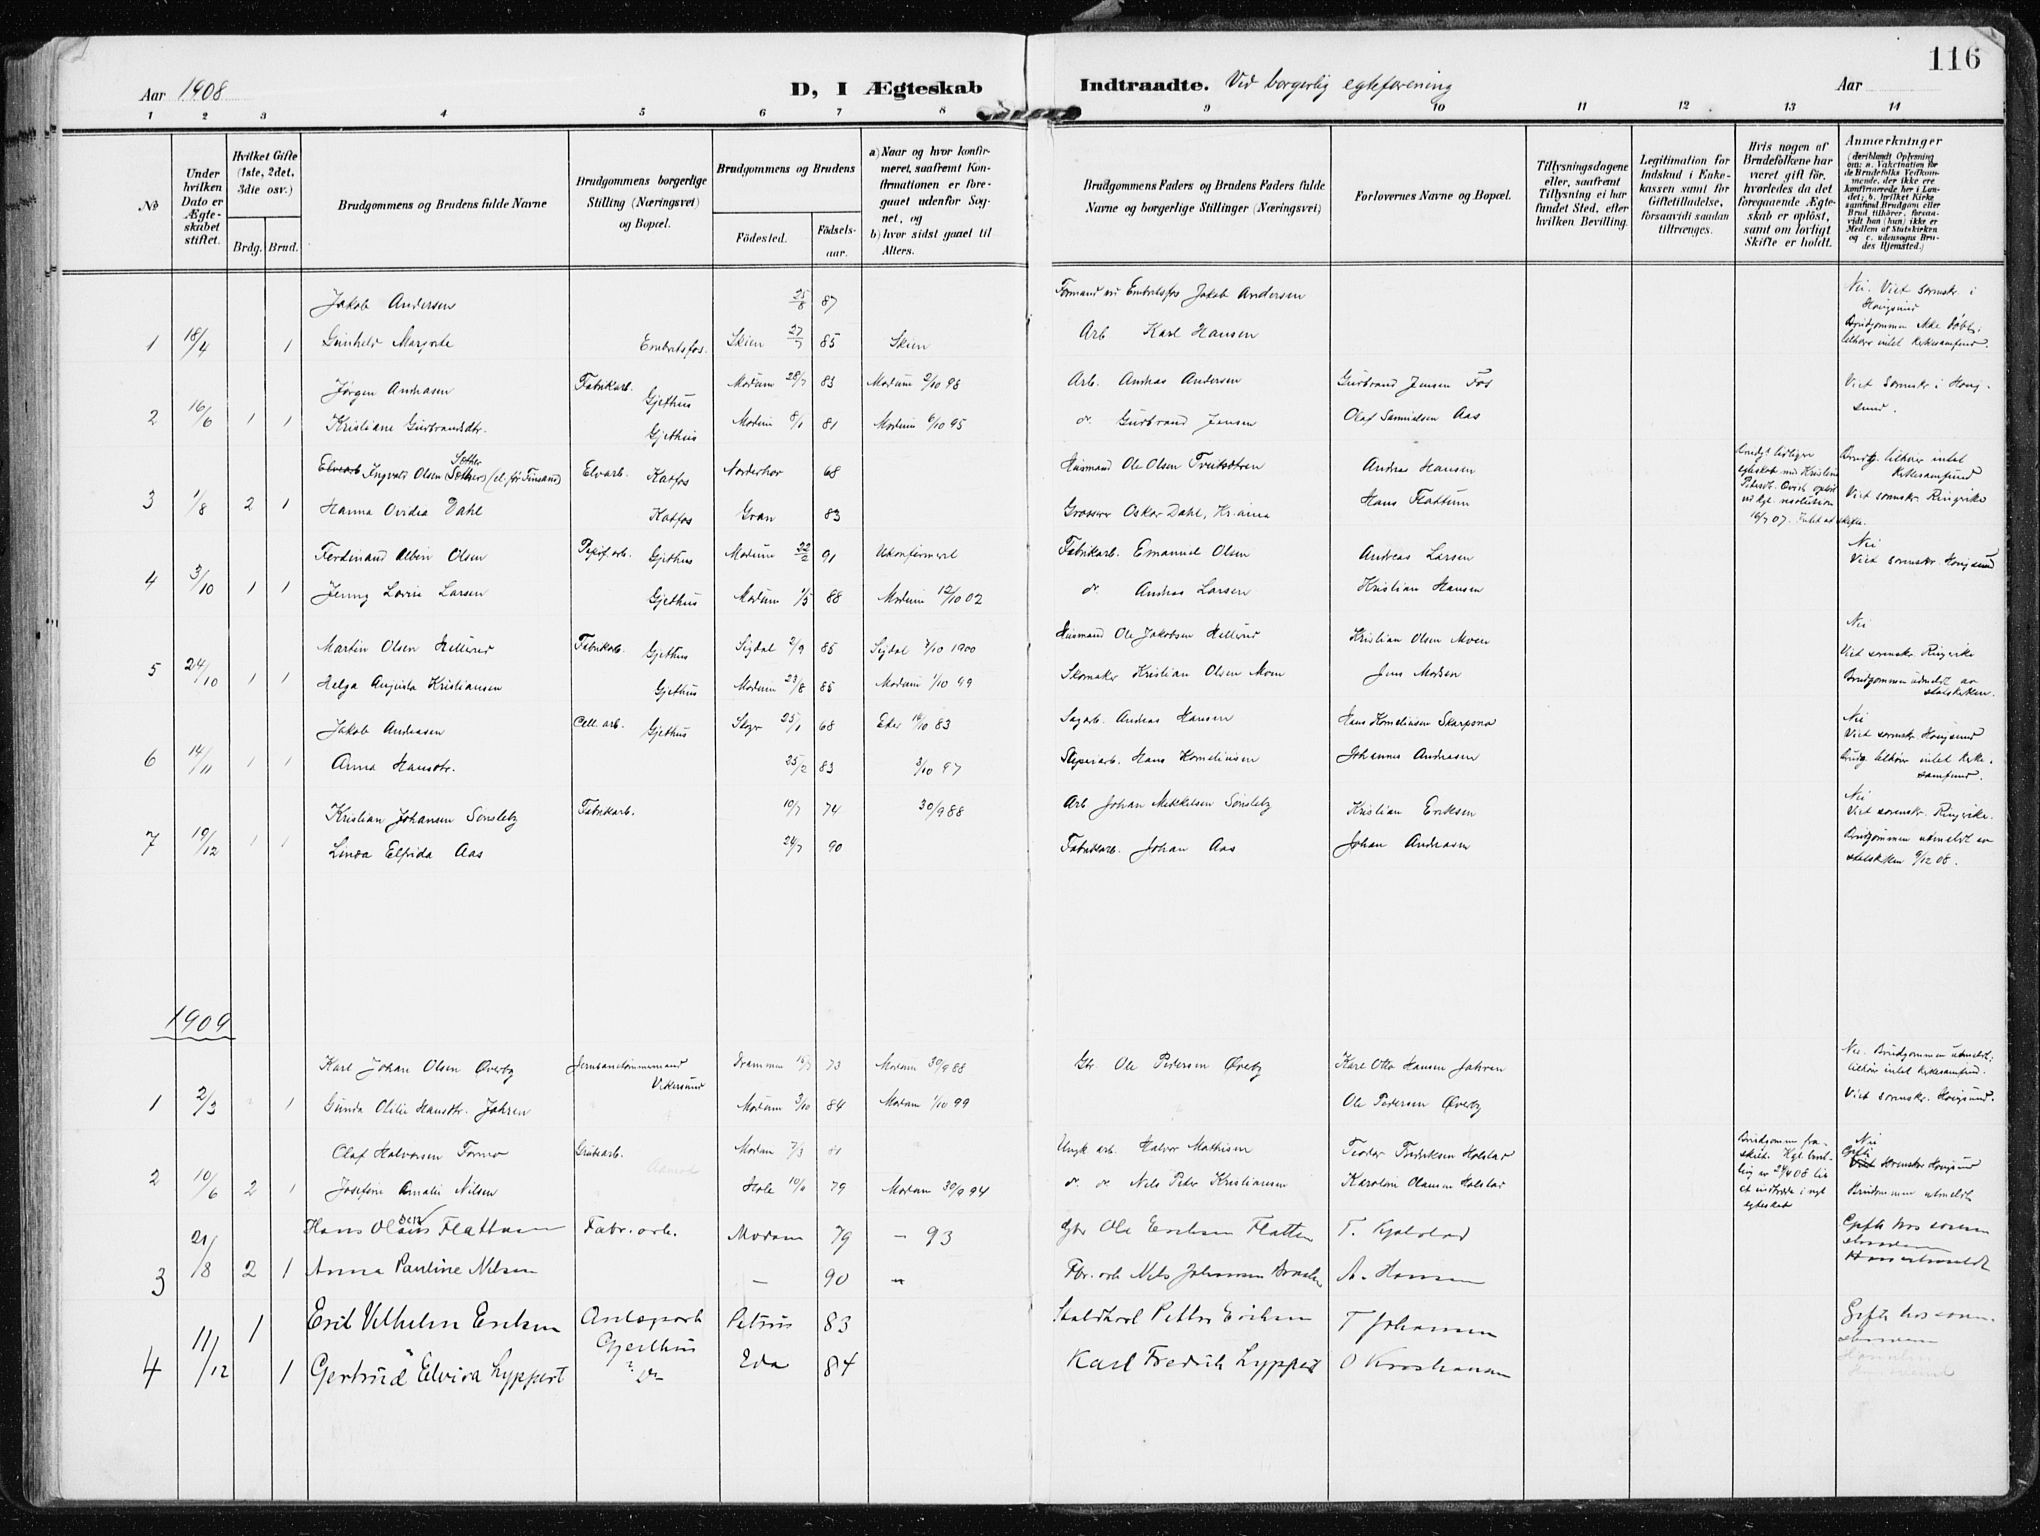 116
Aar 1908
D, I Ægteskab Indtraadte. Ved borgerlig egteforening
Aar
1 2 3 4 5 6 7 8 9 10 11 12 13 14
No
Under hvilken Dato er Ægteskabet stiftet.
Hvilket Gifte (1ste, 2det, 3die osv.)
Brdg. Brud.
Brudgommens og Brudens fulde Navne
Brudgommens borgerlige Stilling (Næringsvei) og Bopæl.
Brudgommens og Brudens
Fødested. Fødselsaar.
a) Naar og hvor konfirmeret, saafremt Konfirmationen er foregaaet udenfor Sognet, og
b) hvor sidst gaaet til Alters.
Brudgommens Faders og Brudens Faders fulde Navne og borgerlige Stillinger (Næringsvei)
Forlovernes Navne og Bopæl.
Tillysningsdagene eller, saafremt Tillysning ei har fundet Sted, efter hvilken Bevilling.
Legitimation for Indskud i Enkekassen samt for Giftetilladelse, forsaavidt saadan tiltrænges.
Hvis nogen af Brudefolkene har været gift før, hvorledes da det foregaaende Ægteskab er opløst, samt om lovligt Skifte er holdt.
Anmærkninger (deriblandt Oplysning om: a. Vakcination for de Brudefolks Vedkommende, der ikke ere konfirmerede her i Landet; b. hvilket Kirkesamfund Brudgom eller Brud tilhører, forsaavidt han (hun) ikke er Medlem af Statskirken og c. udensogns Brudes Hjemsted.)
Jakob Andersen 25/8 87 Formand ved Embretsfos Jakob Andersen Nei. Viet sorenskr. i Hougsund
1 18/4 1 Gunhild Margrete Embretsfos. Skien 27/7 85 Skien Arb Karl Hansen Brudgommen ikke døbt; tilhører intet kirkesamfund.
Jørgen Andreasen Fabrikarb. Gjethus Modum 28/7 83 Modum 2/10 98 Arb. Andreas Andersen Gudbrand Jensen Fos Viet sorenskr. i Hougsund.
2 16/6 1 1 Kristiane Gudbrandsdtr. Gjethus Modum 8/1 81 Modum 6/10 95 do. Gudbrand Jensen Olaf Samuelsen Aas
Elvearb Ingvald Olsen Sæther (el. før Finsand) Elvarb. Katfos Norderhov 68 Husmand Ole Olsen Andreas Hansen Brudg. tilhører intet kirkesamfund
3 1/8 2 1 Hanna Ovidia Dahl Katfos Gran 83 Grosserer Oskar Dahl, Kr.ania Hans Flattum Viet sorenskr. Ringerike
16/7 07.
Ferdinand Albin Olsen Gjethus Modum 22/2 91 Ukonfirmeret Fabrikarb. Emanuel Olsen Andreas Larsen Nei Viet sorenskr. Hougsund
4 3/10 1 1 Jenny Lovise Larsen Gjethus Modum 1/5 88 Modum 12/10 02 do. Andreas Larsen Kristian Hansen
Martin Olsen Hellerud Fabrikarb. Gjethus Sigdal 2/9 85 Sigdal 7/10 1900 Husmand Ole Jakobsen Hellerud Kristian Olsen Moen Nei Viet sorenskr. Ringerike
5 24/10 1 1 Helga Augusta Kristiansen Gjethus Modum 23/8 85 Modum 1/10 99 Skomaker Kristian Olsen Moen Jens Madsen Brudgommen udmeldt av statskirken.
Jakob Andreasen Cell. arb. Gjethus Skoger 25/1 68 Eker 14/10 83 Sagarb. Andreas Hansen Hans Korneliusen Skarpsno Nei Viet sorenskr. Hougsund
6 14/11 1 1 Anna Hansdtr. 25/2 83 3/10 97 Sliperiarb. Hans Korneliusen Johannes Andreasen Brudg. tilhører intet kirkesamfund.
Kristian Johansen Sønsteby Fabrikarb. 10/7 74 30/9 88 Arb Johan Mikkelsen Sønsteby Kristian Eriksen Nei Viet sorenskr. Ringerike.
7 19/12 1 1 Linda Elfrida Aas 24/7 90 Fabrikarb. Johan Aas Johan Andreasen Brudgommen utmeldt av statskirken 9/12 08.
1909
Karl Johan Olsen Øverby Jernbanetømmermand Vikersund Drammen 15/7 73 Modum 30/9 88 Gbr Ole Pedersen Øveby Karl Otto Hansen Jahren Nei. Brudgommen utmeldt; tilhører intet kirkesamfund.
1 2/3 1 Gunda Otilie Hansdtr. Jahren Modum 3/10 84 Modum 1/10 99 Ole Pedersen Øverby Viet sorenskr. Hougsund.
Olaf Halvorsen Formo Grubearb. Modum 7/3 81 Halvor Mathisen Teodor Fredriksen Holstad Nei Gifte sorenskr Hougsund
2 10/6 2 1 Josefine Amalie Nilsen Hole 10/9 79 Modum 30/9 94 do. do. Nils Peter Kristiansen Karoline Olausen Holstad Brudgommen utmeldt
Hans Olausen Flattum Fabr. arb. Modum 79 — 93 gbr Ole Eriksen Flatten T. Kjølstad
3 21/8 2 1 Anna Pauline Nilsen — 90 — Fbr. arb Nils Johansen A. Hansen
Erik Vilhelm Eriksen Gjethus 83 Petter Eriksen T Johansen
4 11/12 1 1 Gertrud Elvira Lyppert do Eda 84 Karl Fredrik Lyppert